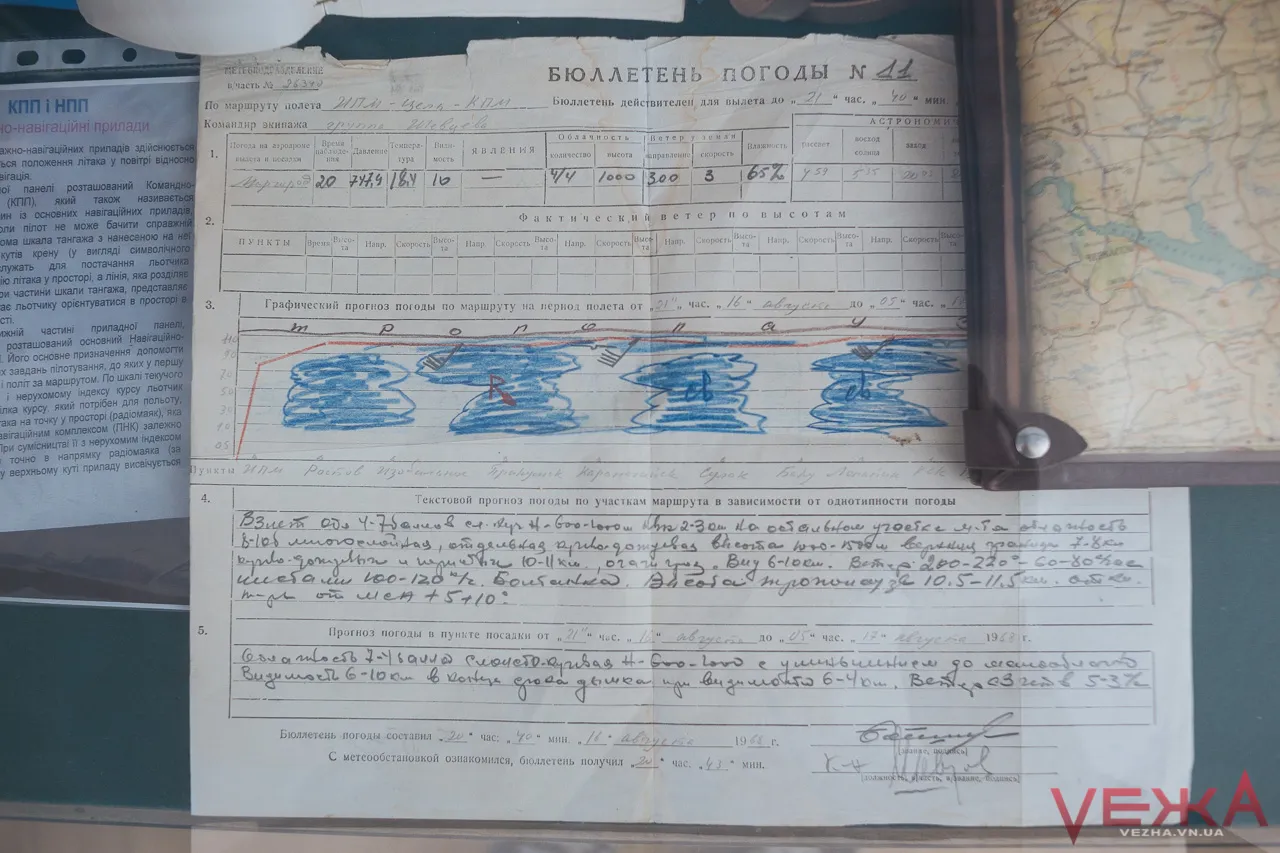 КПП і НПП
но-навігаційні прилади
ажно-навігаційних приладів здійснюється
ься положення літака у повітрі відносно
вігація.
ної панелі розташований Командно-
(КПП), який також називається
ин із основних навігаційних приладів,
оли пілот не може бачити справжній
ома шкала тангажа з нанесеною на неї
кутів крену (у вигляді символічного
служать для постачання льотчика
ію літака у просторі, а лінія, яка розділяє
ри частини шкали тангажа, представляє
ає льотчику орієнтуватися в просторі в
сті.
ижній частині приладної панелі,
розташований основний Навігаційно-
). Його основне призначення допомогти
х завдань пілотування, до яких у першу
і політ за маршрутом. По шкалі текучого
і нерухомому індексу курсу льотчик
ілка курсу, який потрібен для польоту,
така на точку у просторі (радіомаяк), яка
авігаційним комплексом (ПНК) залежно
При сумісництві її з нерухомим індексом
у точно в напрямку радіомаяка (за
у верхньому куті приладу висвічується
в/часть №
БЮЛЛЕТЕНЬ ПОГОДЫ N 11
По маршруту полета ИПМ - Цель - КПМ Бюллетень действителен для вылета до „21“ час. „40“ мин.
Командир экипажа группа
АСТРОНОМИ
1.
Погода на аэродроме вылета и посадки Время наблюдения Давление Температура Видимость ЯВЛЕНИЯ Облачность количество высота Ветер у земли направление скорость Влажность рассвет восход солнца заход
20 747,4 18,4 10 — 4/4 1000 300 3 65% 4 59 5 35
2. Фактический ветер по высотам
ПУНКТЫ Время Высота Напр. Скорость Высота Напр. Скорость Высота Напр. Скорость Высота Напр. Скорость Высота Напр. Скорость Высота Напр. Скорость
3. Графический прогноз погоды по маршруту на период полета от „21“ час. „16“ августа до „05“ час. „17
т р о п о п а у з
110
90
70
50
30
10
05
R св св
Пункты ИПМ Ростов Изобильное Прикумск Сулак Баку
4. Текстовой прогноз погоды по участкам маршрута в зависимости от однотипности погоды
Взлет обл 4-7 баллов сл.-куч Н-600-1000м на остальном участке м-та облачность
8-10б многослойная, отдельная кучево-дождевая высота 1000-1500м верхняя граница 7-8км
кучево-дождевых и перистых 10-11км., очаги гроз. Вид 6-10км. Ветер 200-220° - 60-80
местами 100-120 км/ч. Болтанка. Высота тропопаузы 10.5-11.5км. откл.
т-ры от МСА +5+10°
5. Прогноз погоды в пункте посадки от „21“ час. „16“ августа до „05“ час. „17“ августа 1968 г.
Облачность 7-4 балла слоисто-кучевая Н-600-1000 с уменьшением до малооблачно
Видимость 6-10км в конце срока дымка при видимости 6-4км. Ветер СЗ 5-3
Бюллетень погоды составил „20“ час. „40“ мин. „16“ августа 1968 г.
(звание, подпись)
С метеообстановкой ознакомился, бюллетень получил „20“ час. „43“ мин. К-н
(должность, в/часть, в/звание, подпись)
VEЖА
VEZHA.VN.UA